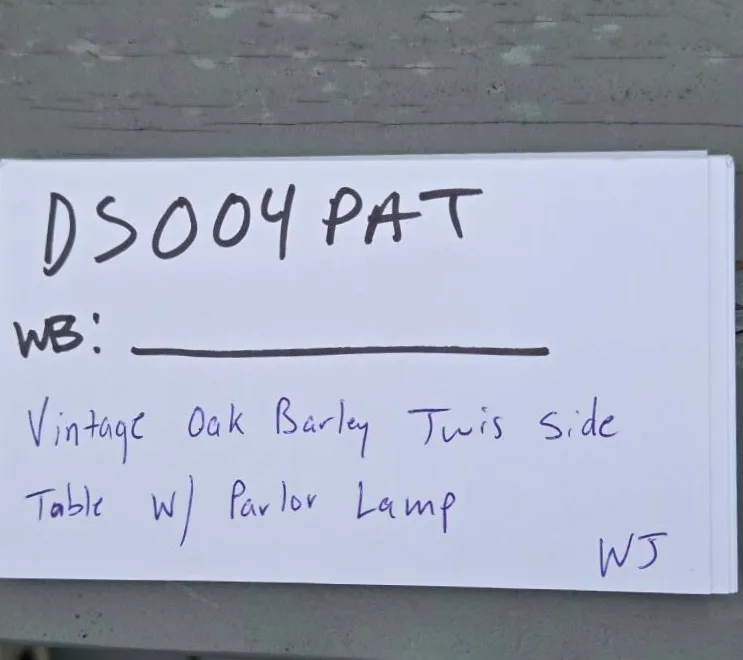 DS004PAT
WB: ____________________
Vintage Oak Barley Twis Side
Table w/ Parlor Lamp
WJ